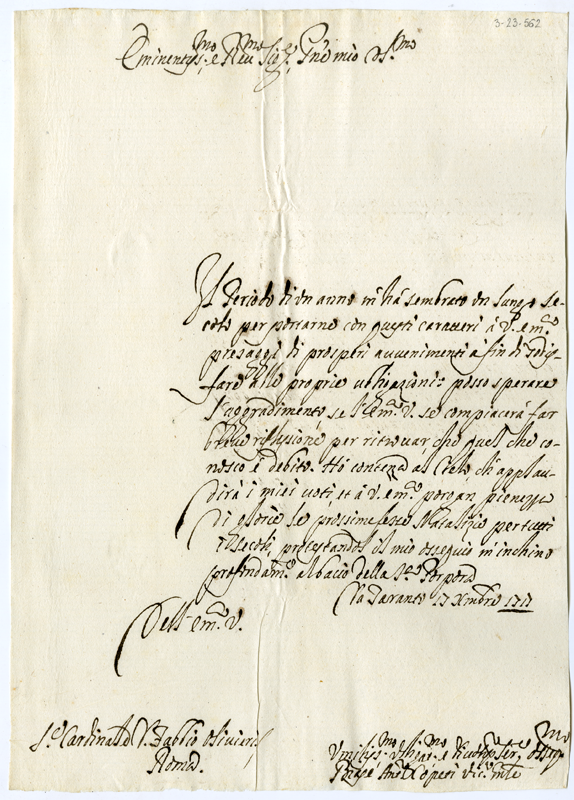 3-23-562
Eminentys.mo e Rev.mo Sig.e Pne mio Oss.mo
Il Periodo di un anno m'hà sembrato un lungo se-
colo per portarne con questi caratteri à V. em.a
presaggi di prosperi avvenimenti à fin di sodis-
fare alle proprie ubligazioni: posso sperare
l'aggradimento se l'em.a V. se compiacerà far
breve riflessione per ritrovar, che quel che co-
nosco è debito. Hò contenza al Cielo, ch'applau-
dirà i miei voti, et à V. em.a porgan pienezza
di glorie le prossime feste Natalizie per tutti
i secoli, protestandos il mio ossequio m'inchino
profondam.e al bacio della S.a Porpora
Taranto 17 Xmbre 1717
Dell' em.a V.
S.r Cardinal D. Fabio Olivieri
Roma.
Umiliss.mo e Ser.